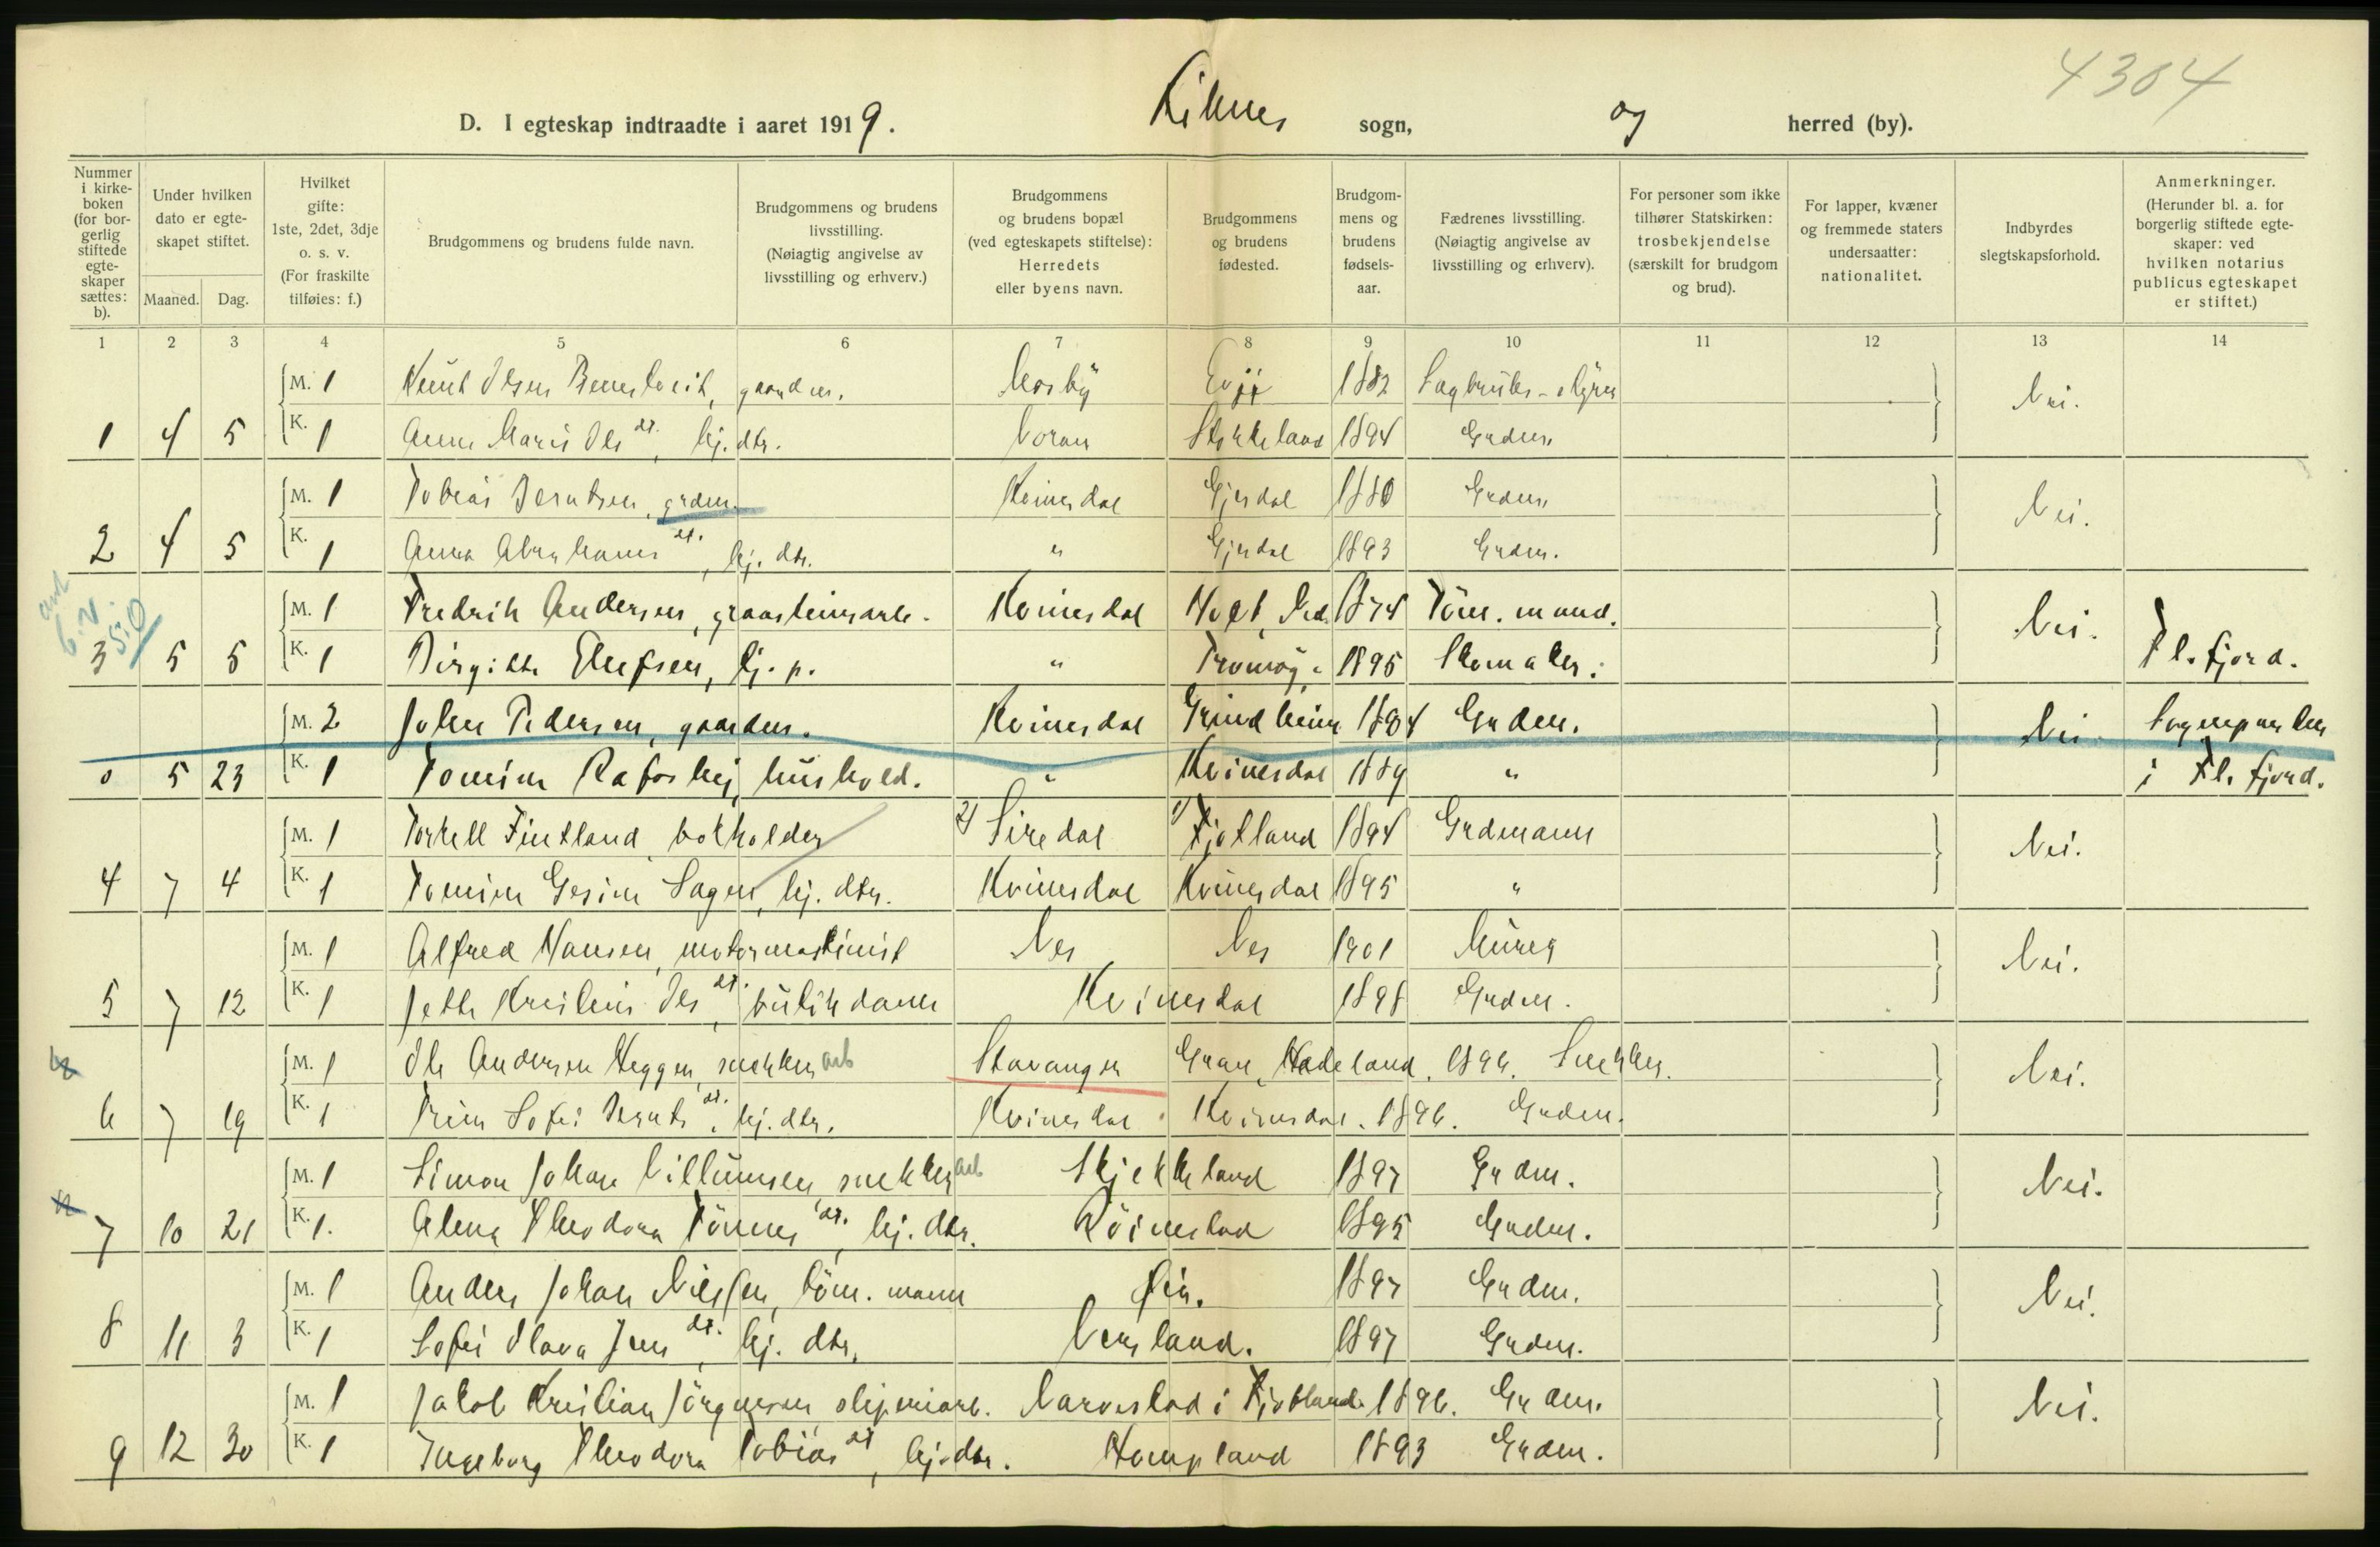 4304
D. I egteskap indtraadte i aaret 1919. Liknes sogn, og herred (by).
Nummer i kirke-boken (for bor-gerlig stiftede egte-skaper sættes: b).
Under hvilken dato er egte-skapet stiftet.
Maaned. Dag.
Hvilket gifte: 1ste, 2det, 3dje o. s. v. (For fraskilte tilføies: f.)
Brudgommens og brudens fulde navn.
Brudgommens og brudens livsstilling. (Nøiagtig angivelse av livsstilling og erhverv.)
Brudgommens og brudens bopæl (ved egteskapets stiftelse): Herredets eller byens navn.
Brudgommens og brudens fødested.
Brudgom-mens og brudens fødsels-aar.
Fædrenes livsstilling. (Nøiagtig angivelse av livsstilling og erhverv).
For personer som ikke tilhører Statskirken: trosbekjendelse (særskilt for brudgom og brud).
For lapper, kvæner og fremmede staters undersaatter: nationalitet.
Indbyrdes slegtskapsforhold.
Anmerkninger. (Herunder bl. a. for borgerlig stiftede egte-skaper: ved hvilken notarius publicus egteskapet er stiftet.)
1 2 3 4 5 6 7 8 9 10 11 12 13 14
M. 1 Knut Olsen, gaardm. Mosby Evje 1882 Sagbruks-styrer Nei.
1 4 5 K. 1 Anne Marie Ols dt., hj. dtr. Stokkeland 1894 Grdm.
M. 1 Tobias Berntsen, grdm. Kvinesdal Gjerdal 1880 Grdm. Nei.
2 4 5 K. 1 Anna Abrahams dt., hj. dtr. " Gjerdal 1893 Grdm.
M. 1 Fredrik Andersen, graasteinsarb. Kvinesdal Holt, Ned. 1874 Tøm. mand. Nei.
3 5 5 K. 1 Birgitte Elefsen, hj. p. " Tromøy " 1895 Skomaker. Fl. fjord.
M. 2 John Pedersen, gaardm. Kvinesdal Grindheim 1884 Grdm. Nei Sognepresten
0 5 23 K. 1 Tomine Rafoshej, hushold. " Kvinesdal 1889 " i Fl. fjord.
M. 1 Torkell Fintland, bokholder 2) Siredal 1) Fjotland 1894 Grdmann Nei.
4 7 4 K. 1 Tomine Gesine Sagen, hj. dtr. Kvinesdal Kvinesdal 1895 "
M. 1 Alfred Hansen, motormaskinist Nes Nes 1901 Murer Nei.
5 7 12 K. 1 Jette Kristine Ols dt., butikdame Kvinesdal 1898 Grdm.
M. 1 Ole Andersen Heggen, snekker arb Stavanger Gran, Hadeland. 1896. Snekker. Nei.
6 7 19 K. 1 Trine Sofie Bernts dt., hj. dtr. Kvinesdal. Kvinesdal. 1896. Grdm.
M. 1 Simon Johan Villumsen, snekker arb Skjekkeland 1897 Grdm. Nei.
7 10 21 K. 1. Alma Theodora Tønnes dt., hj. dtr. Røinestad 1895 Grdm.
M. 1 Anders Johan Nilsen, tøm. mann Øie. 1897 Grdm. Nei.
8 11 3 K. 1 Sofie Olava Jens dt., hj. dtr. 1897 Grdm.
M. 1 Jakob Kristian Jörgensen, sliperiarb. Narvestad i Fjotland 1896. Grdm. Nei.
9 12 30 K. 1 Ingeborg Theodora Tobias dt, hj. dtr. Hompland 1893 Grdm.